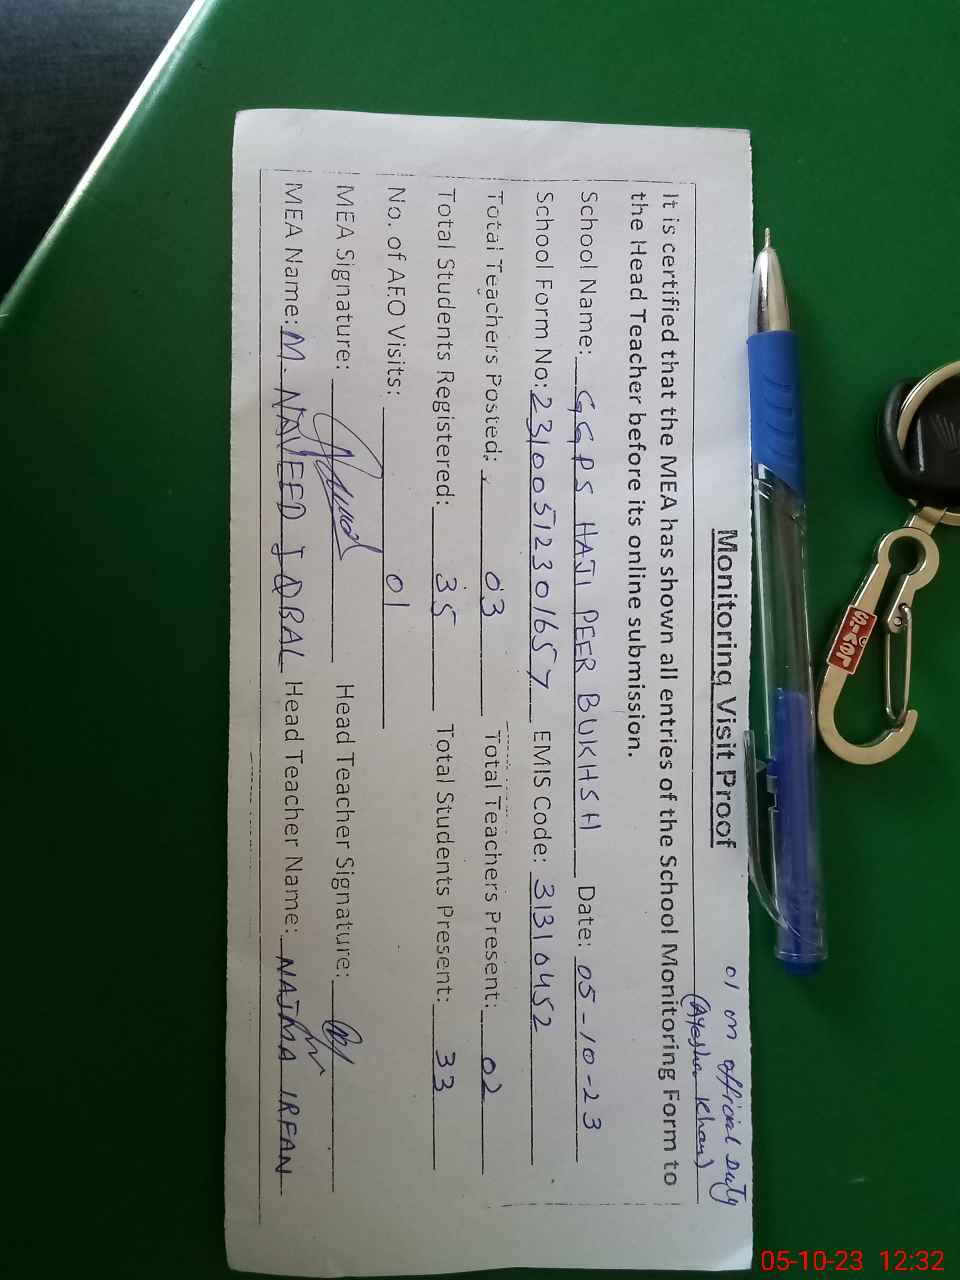 01 on official Duty
(Ayesha Khan)
Monitoring Visit Proof
It is certified that the MEA has shown all entries of the School Monitoring Form to
the Head Teacher before its online submission.
School Name: GGPS HAJI PEER BUKHSH Date: 05-10-23
School Form No: 23100512301657 EMIS Code: 31310452
Total Teachers Posted: 03 Total Teachers Present: 02
Total Students Registered: 35 Total Students Present: 33
No. of AEO Visits: 01
MEA Signature: Head Teacher Signature:
MEA Name: M. NAVEED IQBAL Head Teacher Name: NAJMA IRFAN
05-10-23 12:32